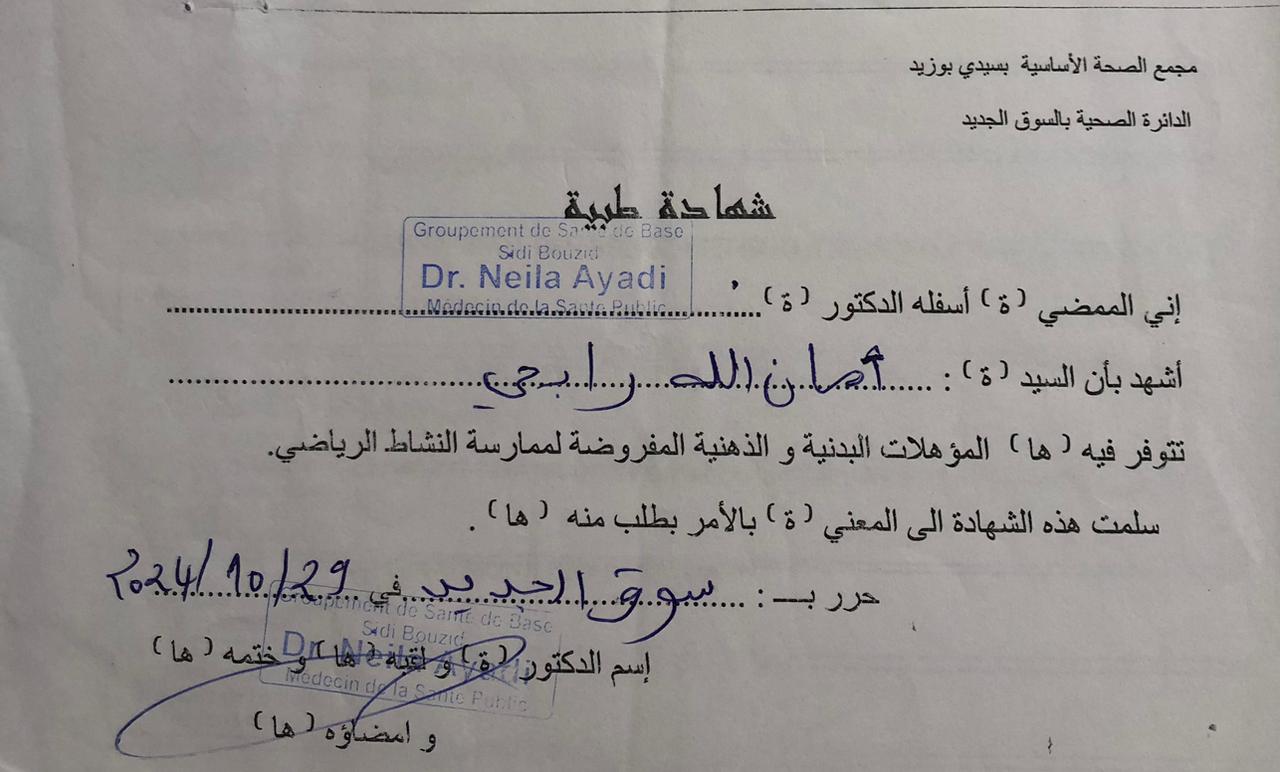 مجمع الصحة الأساسية بسيدي بوزيد
الدائرة الصحية بالسوق الجديد
شهادة طبية
Groupement de Santé de Base
Sidi Bouzid
Dr. Neila Ayadi
Médecin de la Santé Public
إني الممضي (ة) أسفله الدكتور (ة) ........................................
أشهد بأن السيد (ة) : أمان الله رابحي
تتوفر فيه (ها) المؤهلات البدنية و الذهنية المفروضة لممارسة النشاط الرياضي.
سلمت هذه الشهادة الى المعني (ة) بالأمر بطلب منه (ها) .
حرر بـــ : سوق الجديد في 2024/10/29
Groupement de Santé de Base
Sidi Bouzid
Dr. Neila Ayadi
Médecin de la Santé Public
إسم الدكتور (ة) و لقبه (ها) و ختمه (ها)
و امضاؤه (ها)